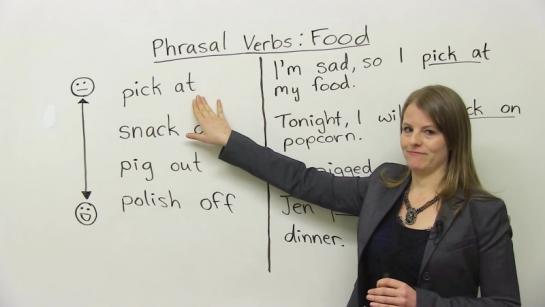 Phrasal Verbs: Food
pick at
snack
pig out
polish off
I'm sad, so I pick at
my food.
Tonight, I on
popcorn.
Jen
dinner.